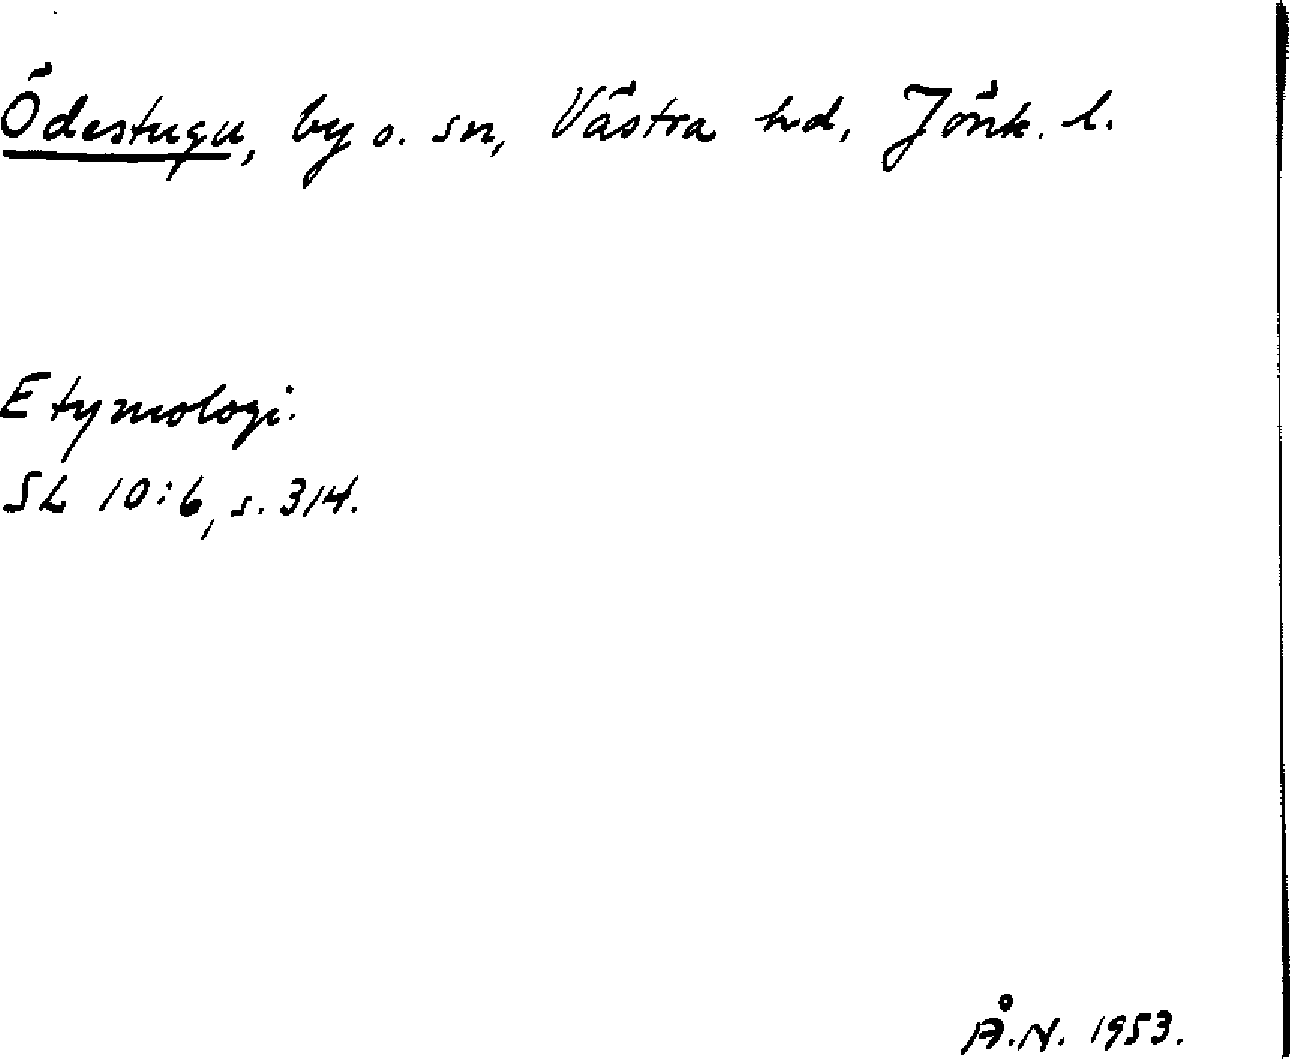 Ödestugu, by o. sn, Västra hd, Jönk. l.
Etymologi.
SL 10:6, s. 314.
Å.N. 1953.